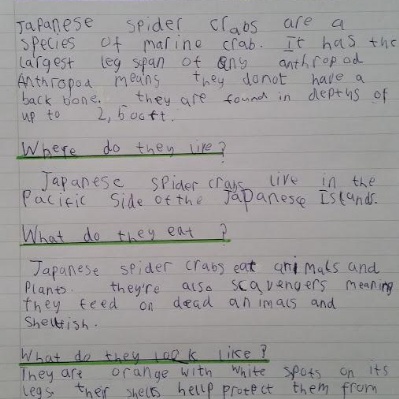 Japanese spider crabs are a
species of marine crab. It has the
largest leg span of any anthropod
Anthropoda means they donot have a
back bone. they are found in depths of
up to 2,600ft.
Where do they live?
Japanese spider crabs live in the
Pacific side of the Japanese Islands.
What do they eat ?
Japanese spider crabs eat animals and
plants. they're also scavengers meaning
they feed on dead animals and
shellfish.
What do they look like?
They are orange with white spots on its
legs their shells hellp protect them from